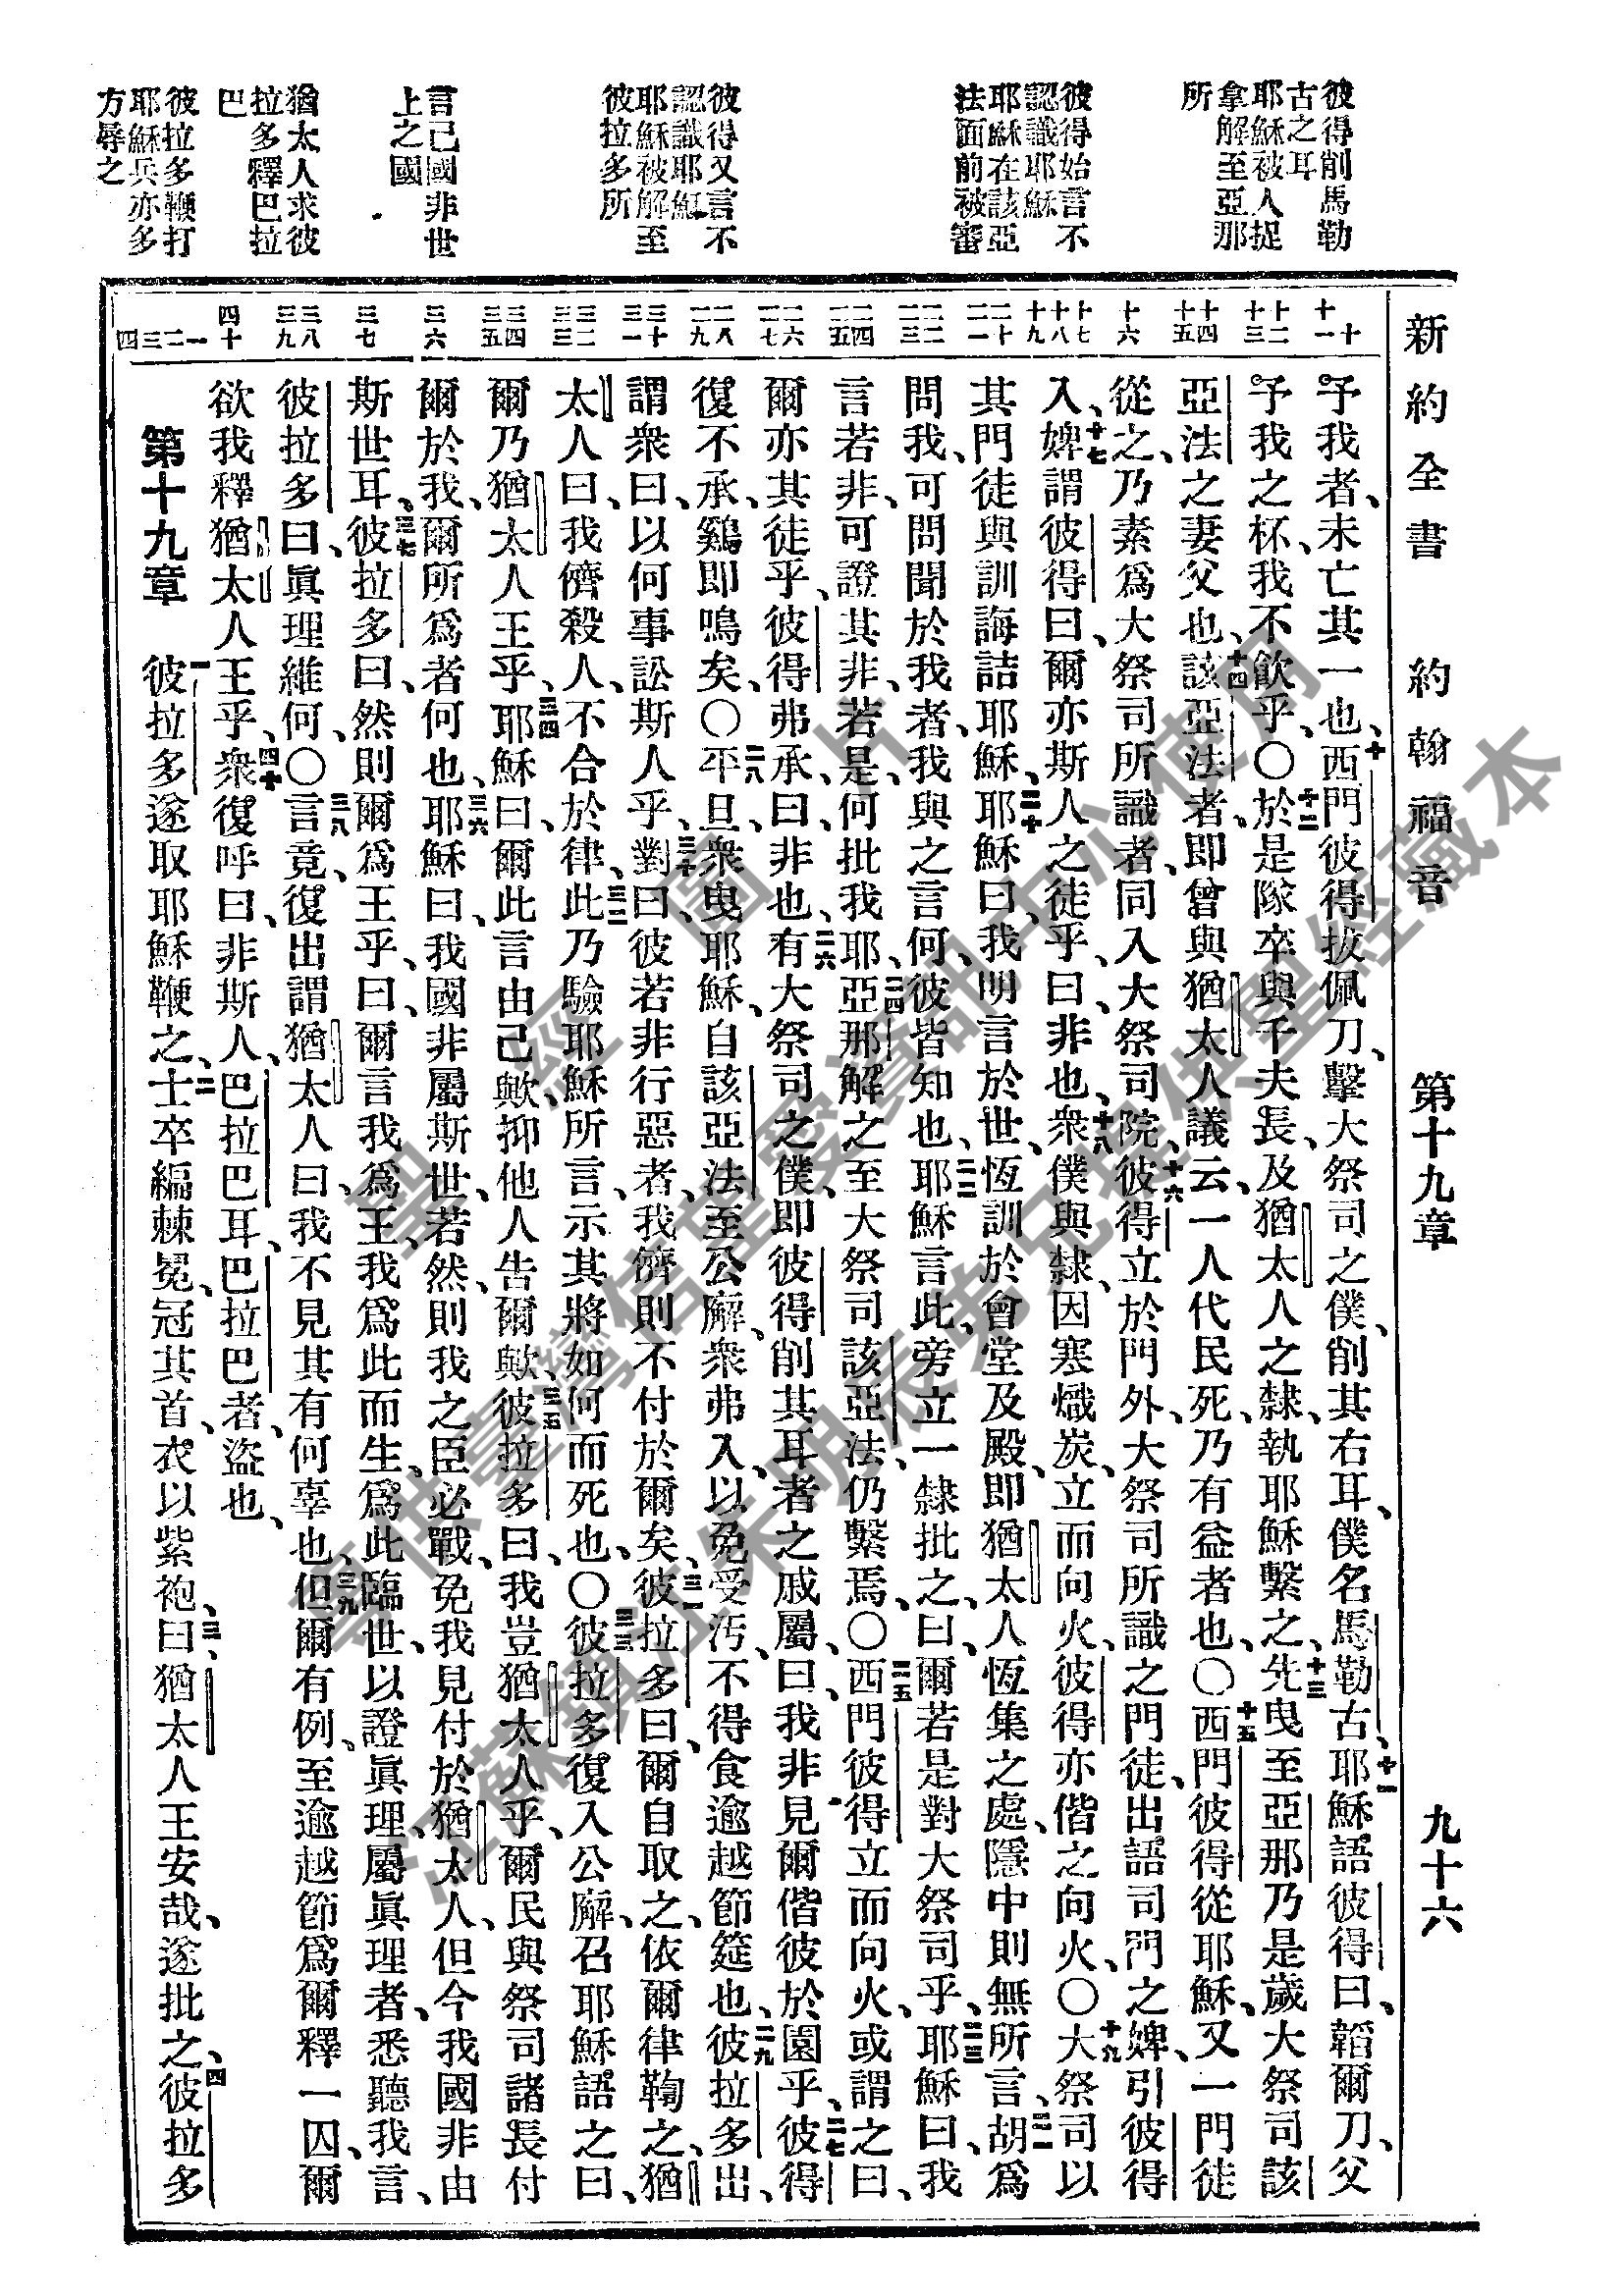 新約全書 約翰福音 第十九章 九十六
彼得削馬勒
古之耳
耶穌被人捉
拿解至亞那
所
彼得始言不
認識耶穌
耶穌在該亞
法面前被審
彼得又言不
認識耶穌
耶穌被解至
彼拉多所
言己國非世
上之國
猶太人求彼
拉多釋巴拉
巴
彼拉多鞭打
耶穌兵亦多
方辱之
十
十一
十二
十三
十四
十五
十六
十七
十八
十九
二十
二一
二二
二三
二四
二五
二六
二七
二八
二九
三十
三一
三二
三三
三四
三五
三六
三七
三八
三九
四十
一
二
三
四
予我者、未亡其一也、十西門彼得拔佩刀、擊大祭司之僕、削其右耳、僕名馬勒古、十一耶穌語彼得曰、韜爾刀、父
予我之杯、我不飲乎、〇十二於是隊卒與千夫長、及猶太人之隸、執耶穌繫之、十三先曳至亞那、乃是歲大祭司該
亞法之妻父也、十四該亞法者、即曾與猶太人議云、一人代民死、乃有益者也、〇十五西門彼得從耶穌、又一門徒
從之、乃素爲大祭司所識者、同入大祭司院、十六彼得立於門外、大祭司所識之門徒、出語司門之婢、引彼得
入、十七婢謂彼得曰、爾亦斯人之徒乎、曰、非也、十八衆僕與隸、因寒熾炭、立而向火、彼得亦偕之向火、〇十九大祭司以
其門徒與訓誨詰耶穌、二十耶穌曰、我明言於世、恆訓於會堂及殿、即猶太人恆集之處、隱中則無所言、二一胡爲
問我、可問聞於我者、我與之言何、彼皆知也、二二耶穌言此、旁立一隸批之、曰、爾若是對大祭司乎、二三耶穌曰、我
言若非、可證其非、若是、何批我耶、二四亞那解之至大祭司該亞法、仍繫焉、〇二五西門彼得立而向火、或謂之曰、
爾亦其徒乎、彼得弗承、曰、非也、二六有大祭司之僕、即彼得削其耳者之戚屬、曰、我非見爾偕彼於園乎、二七彼得
復不承、鷄即鳴矣、〇二八平旦、衆曳耶穌、自該亞法至公廨、衆弗入、以免受汚、不得食逾越節筵也、二九彼拉多出、
謂衆曰、以何事訟斯人乎、三十對曰、彼若非行惡者、我儕則不付於爾矣、三一彼拉多曰、爾自取之、依爾律鞫之、猶
太人曰、我儕殺人、不合於律、三二此乃驗耶穌所言、示其將如何而死也、〇三三彼拉多復入公廨、召耶穌語之曰、
爾乃猶太人王乎、三四耶穌曰、爾此言由己歟、抑他人告爾歟、三五彼拉多曰、我豈猶太人乎、爾民與祭司諸長付
爾於我、爾所爲者何也、三六耶穌曰、我國非屬斯世、若然、則我之臣必戰、免我見付於猶太人、但今我國非由
斯世耳、三七彼拉多曰、然則爾爲王乎、曰、爾言我爲王、我爲此而生、爲此臨世、以證眞理、屬眞理者、悉聽我言、
彼拉多曰、眞理維何、〇三八言竟、復出謂猶太人曰、我不見其有何辜也、三九但爾有例、至逾越節爲爾釋一囚、爾
欲我釋猶太人王乎、四十衆復呼曰、非斯人、巴拉巴耳、巴拉巴者、盜也、
第十九章 一彼拉多遂取耶穌鞭之、二士卒編棘冕、冠其首、衣以紫袍、三曰、猶太人王安哉、遂批之、四彼拉多
聖經圖片
粵供臺灣信望愛資訊中心使用
江蘇鎮江朱明辰弟兄提供聖經藏本